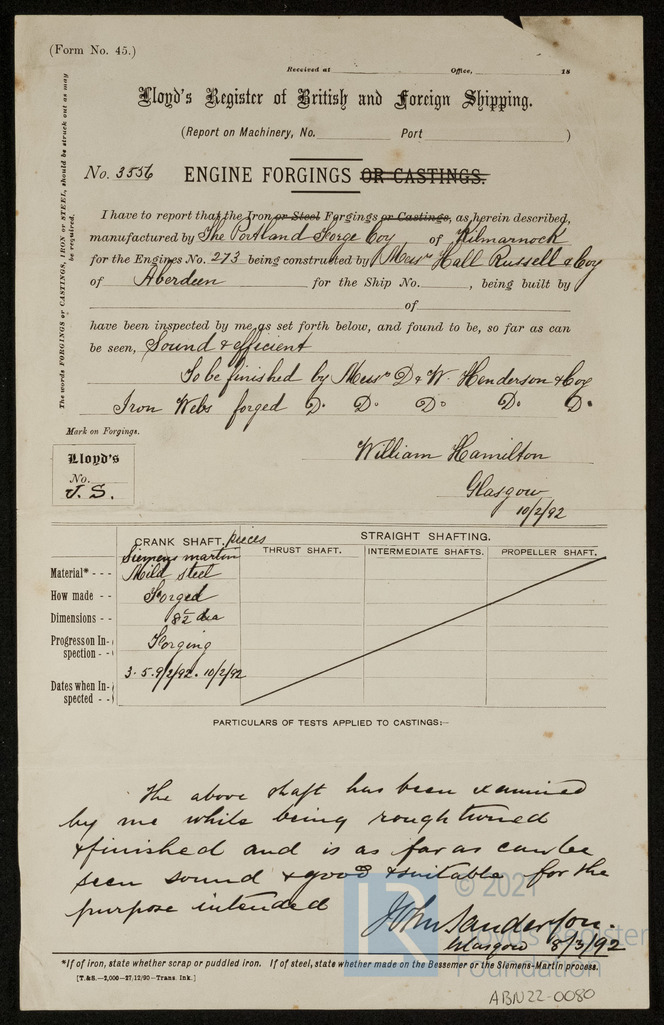 (Form No. 45.)
Received at Office, 18
Lloyd's Register of British and Foreign Shipping.
(Report on Machinery, No. Port )
No. 3556 ENGINE FORGINGS OR CASTINGS.
The words FORGINGS or CASTINGS, IRON or STEEL, should be struck out as may be required.
I have to report that the Iron or Steel Forgings or Castings, as herein described,
manufactured by The Portland Forge Coy of Kilmarnock
for the Engines No. 273 being constructed by Messrs Hall Russell & Coy
of Aberdeen for the Ship No. , being built by
of
have been inspected by me as set forth below, and found to be, so far as can
be seen, Sound & efficient
To be finished by Messrs D & W. Henderson & Coy
Iron Webs forged Do. Do. Do. Do. Do.
Mark on Forgings.
William Hamilton
Lloyd's
No.
J. S.
Glasgow
10/2/92
CRANK SHAFT. pieces STRAIGHT SHAFTING.
THRUST SHAFT. INTERMEDIATE SHAFTS. PROPELLER SHAFT.
Siemens martin
Material* - - - Mild steel
How made - - Forged
Dimensions - - 8½ dia
Progress on In-
spection - - Forging
3. 5. 9/2/92. 10/2/92
Dates when In-
spected - -
PARTICULARS OF TESTS APPLIED TO CASTINGS:—
The above shaft has been examined
by me while being rough turned
& finished and is as far as can be
seen sound & good & suitable for the
purpose intended
John Sanderson.
Glasgow 8/3/92
© 2021
Lloyd's Register
Foundation
LR
*If of iron, state whether scrap or puddled iron. If of steel, state whether made on the Bessemer or the Siemens-Martin process.
[T.&S.—2,000—27/12/90—Trans. Ink.]
ABN22-0080